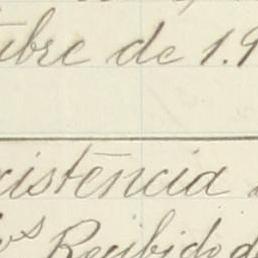 tubre de 1.9
xistencia
os Recibido d